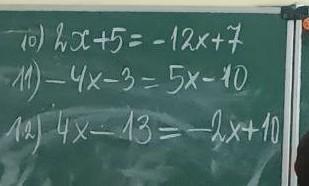 10) 2x+5=-12x+7
11) -4x-3=5x-10
12) 4x-13=-2x+10